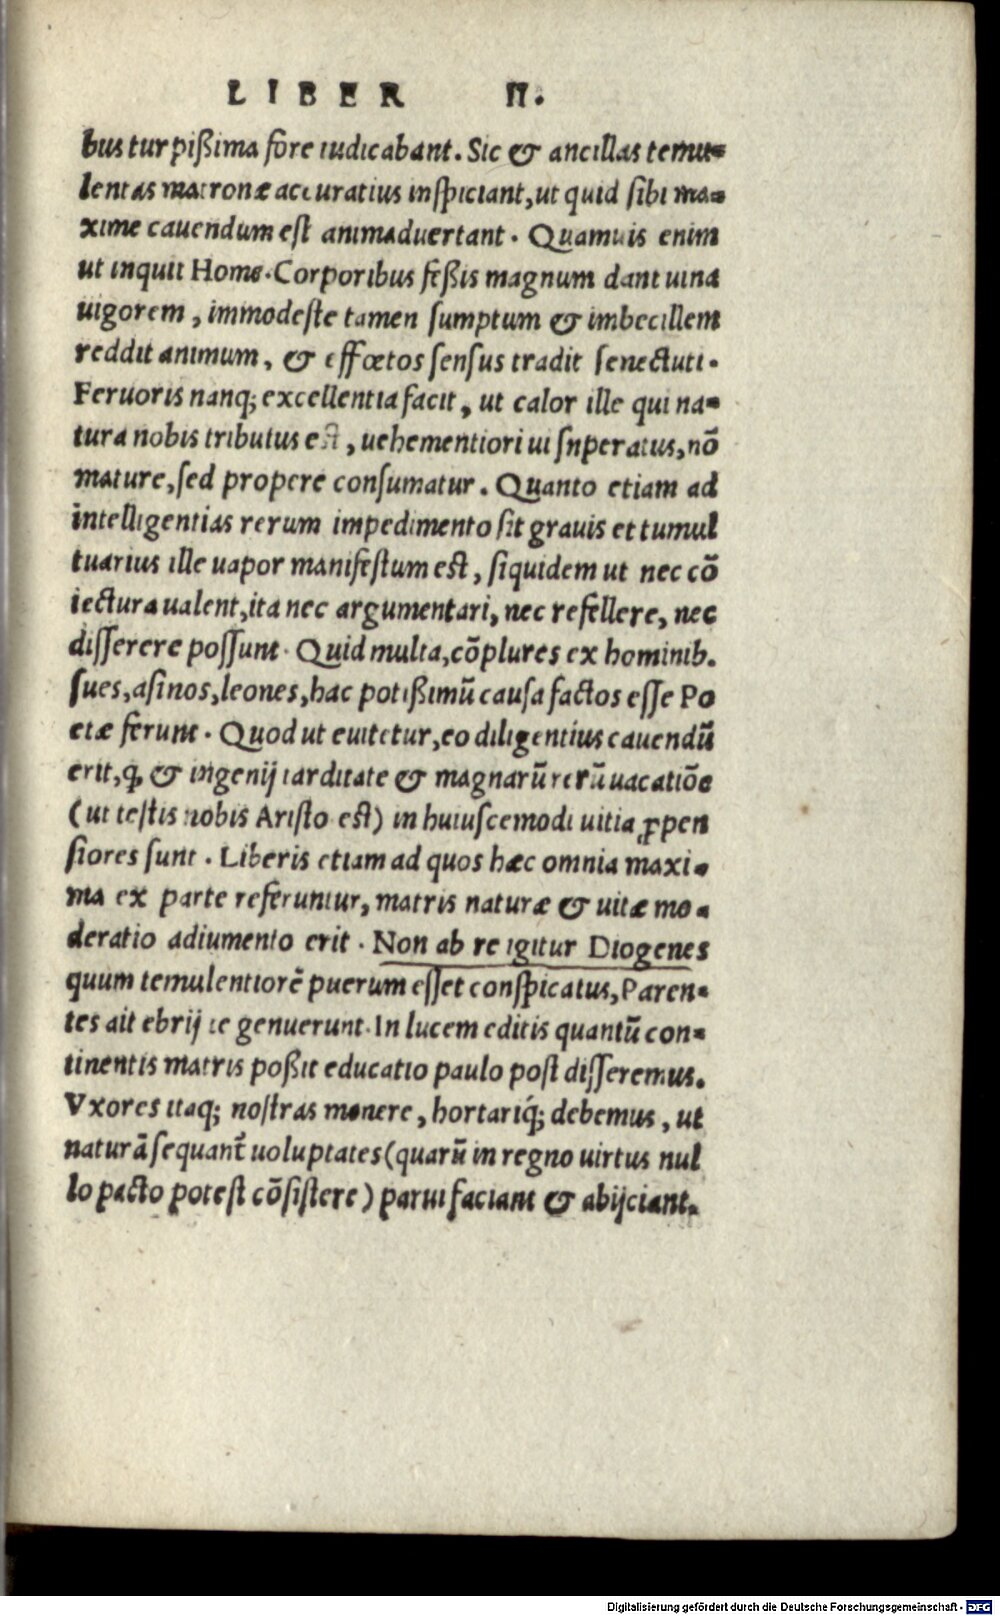 LIBER II.
bus turpißima fore iudicabant. Sic & ancillas temu-
lentas matronæ accuratius inspiciant, ut quid sibi ma-
xime cauendum est animaduertant. Quamuis enim
ut inquit Home. Corporibus feßis magnum dant uina
uigorem, immodeste tamen sumptum & imbecillem
reddit animum, & effœtos sensus tradit senectuti.
Feruoris nanq; excellentia facit, ut calor ille qui na-
tura nobis tributus est, uehementiori ui snperatus, nō
mature, sed propere consumatur. Quanto etiam ad
intelligentias rerum impedimento sit grauis et tumul
tuarius ille uapor manifestum est, siquidem ut nec cō
iectura ualent, ita nec argumentari, nec refellere, nec
disserere possunt. Quid multa, cōplures ex hominib.
sues, asinos, leones, hac potißimū causa factos esse Po
etæ ferunt. Quod ut euitetur, eo diligentius cauendū
erit, ꝙ & ingenij tarditate & magnarū rerū uacatiōe
(ut testis nobis Aristo est) in huiuscemodi uitia ꝓpen
siores sunt. Liberis etiam ad quos hæc omnia maxi-
ma ex parte referuntur, matris naturæ & uitæ mo-
deratio adiumento erit. Non ab re igitur Diogenes
quum temulentiorē puerum esset conspicatus, Paren-
tes ait ebrij te genuerunt. In lucem editis quantū con-
tinentis matris poßit educatio paulo post disseremus.
Vxores itaq; nostras monere, hortariq́; debemus, ut
naturā sequant̄ uoluptates (quarū in regno uirtus nul
lo pacto potest cōsistere) parui faciant & abijciant.
Digitalisierung gefördert durch die Deutsche Forschungsgemeinschaft - DFG